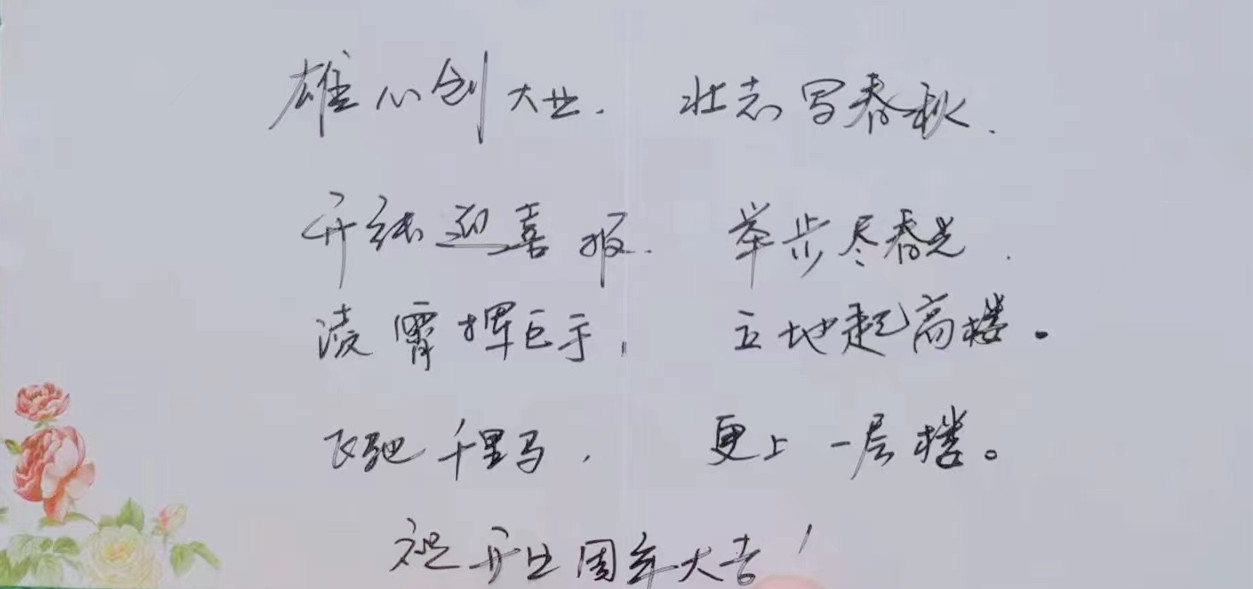 雄心创大业. 壮志写春秋.
开张迎喜报. 举步尽春光.
凌霄挥巨手, 立地起高楼。
飞驰千里马, 更上一层楼。
祝开业周年大吉!